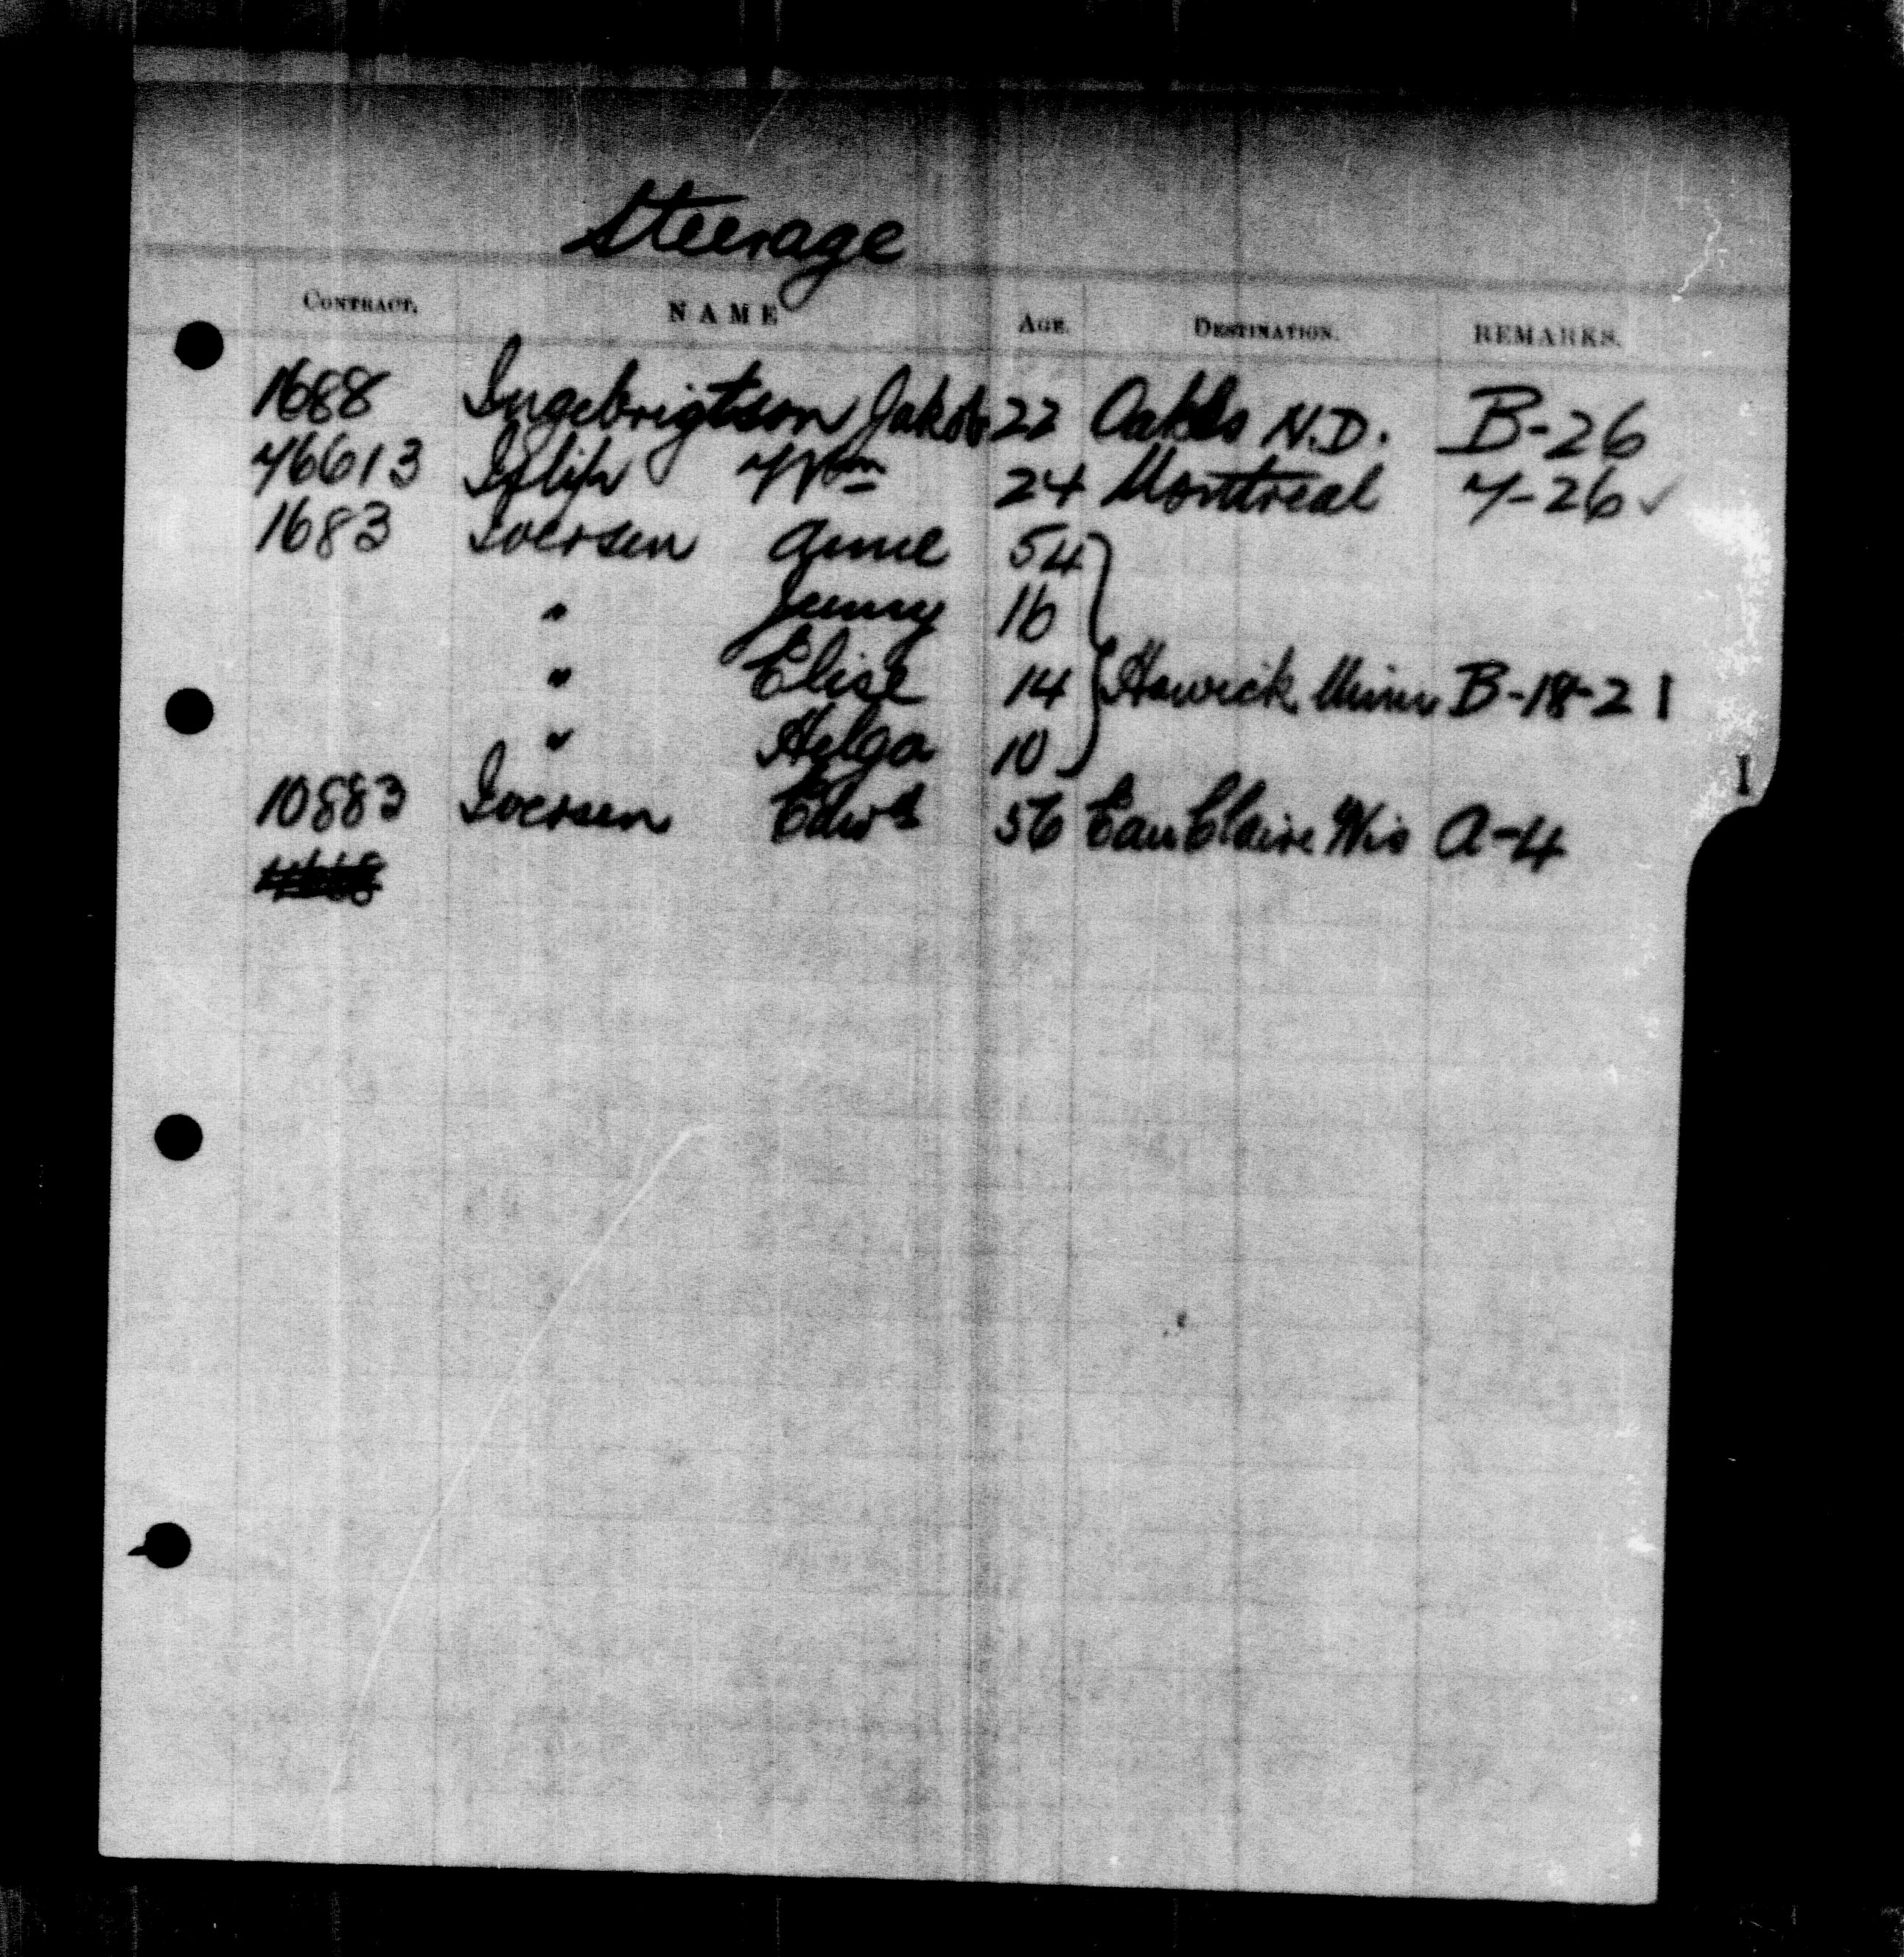 Steerage
CONTRACT. NAME AGE. DESTINATION. REMARKS.
1688 Ingebrigtson Jakob 22 Oakes N.D. B-26
46613 Islip Wm 24 Montreal 7-26 ✓
1683 Iversen Anne 54
" Jenny 16
" Elise 14 Hawick Minn B-18-21
" Helga 10
I
10883 Iversen Edwd 56 Eau Claire Wis A-4